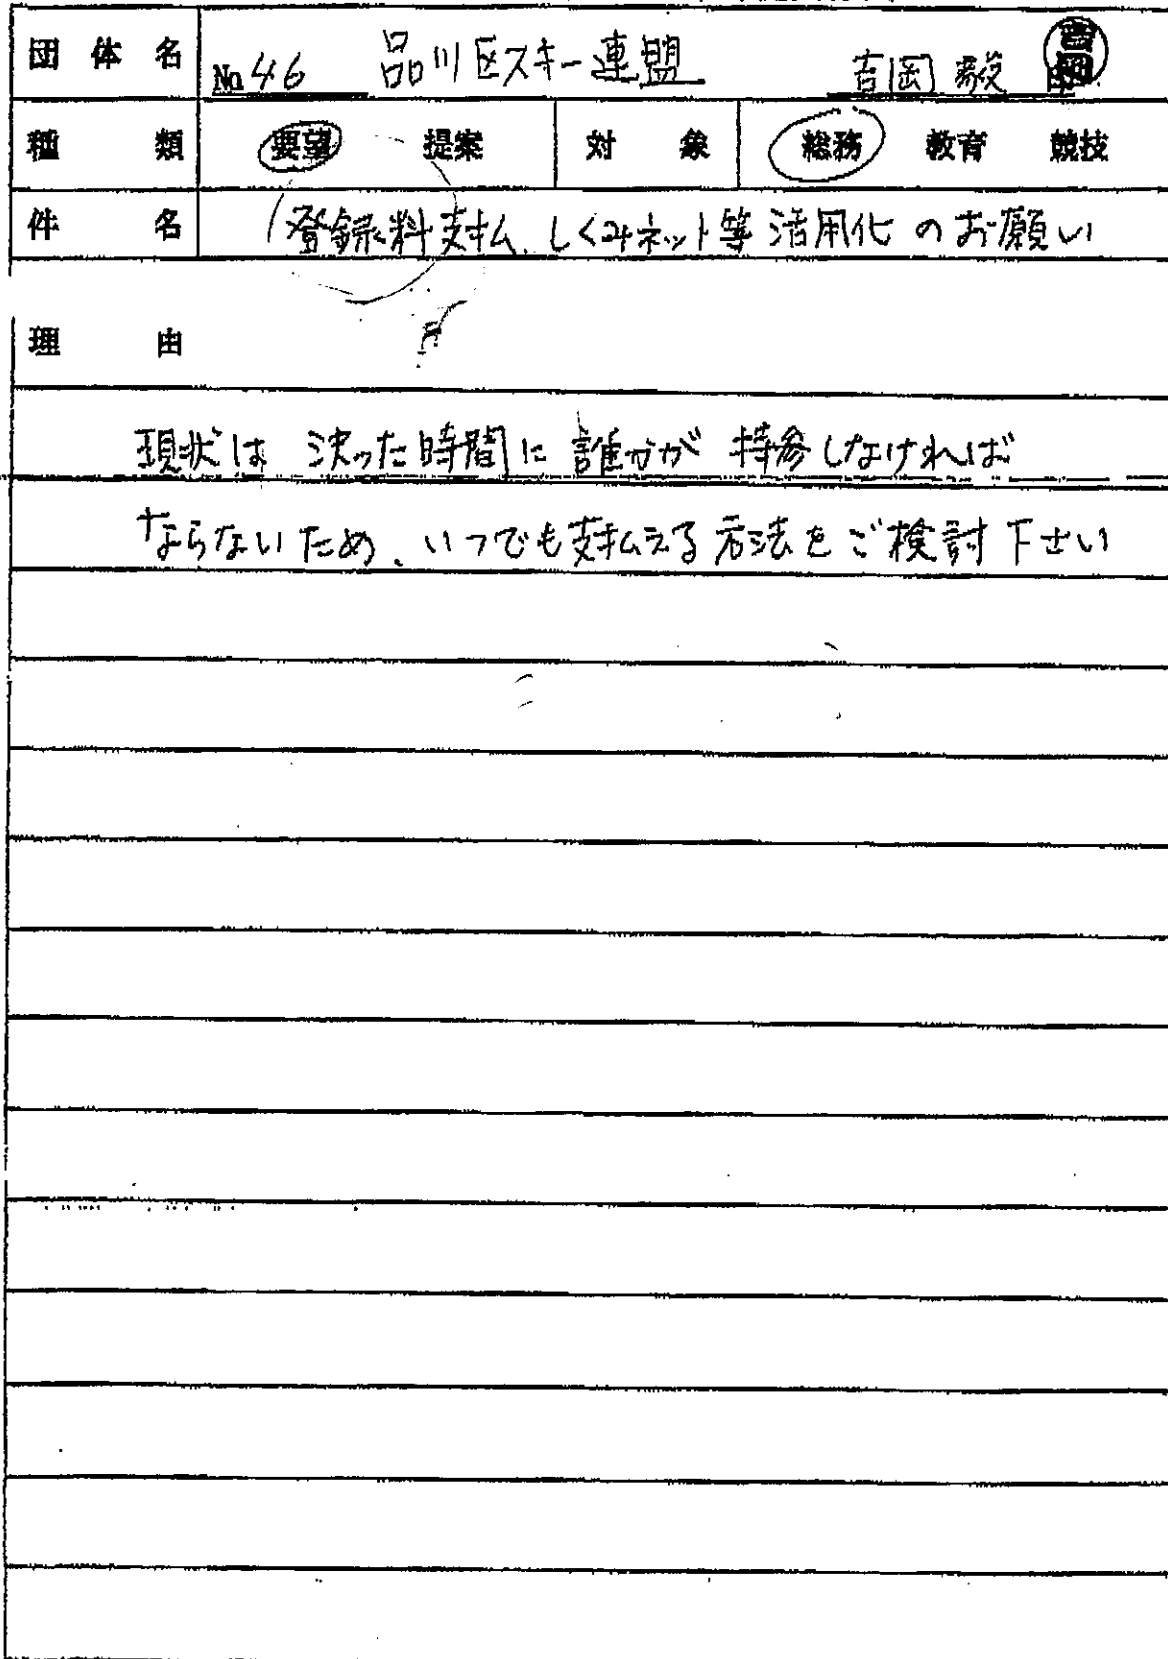 団体名 No.46 品川区スキー連盟 吉岡 毅 印
種類 要望 提案 対象 総務 教育 競技
件名 登録料支払、しくみネット等活用化のお願い
理由
現状は 決った時間に 誰かが 持参しなければ
ならないため、いつでも支払える方法をご検討下さい